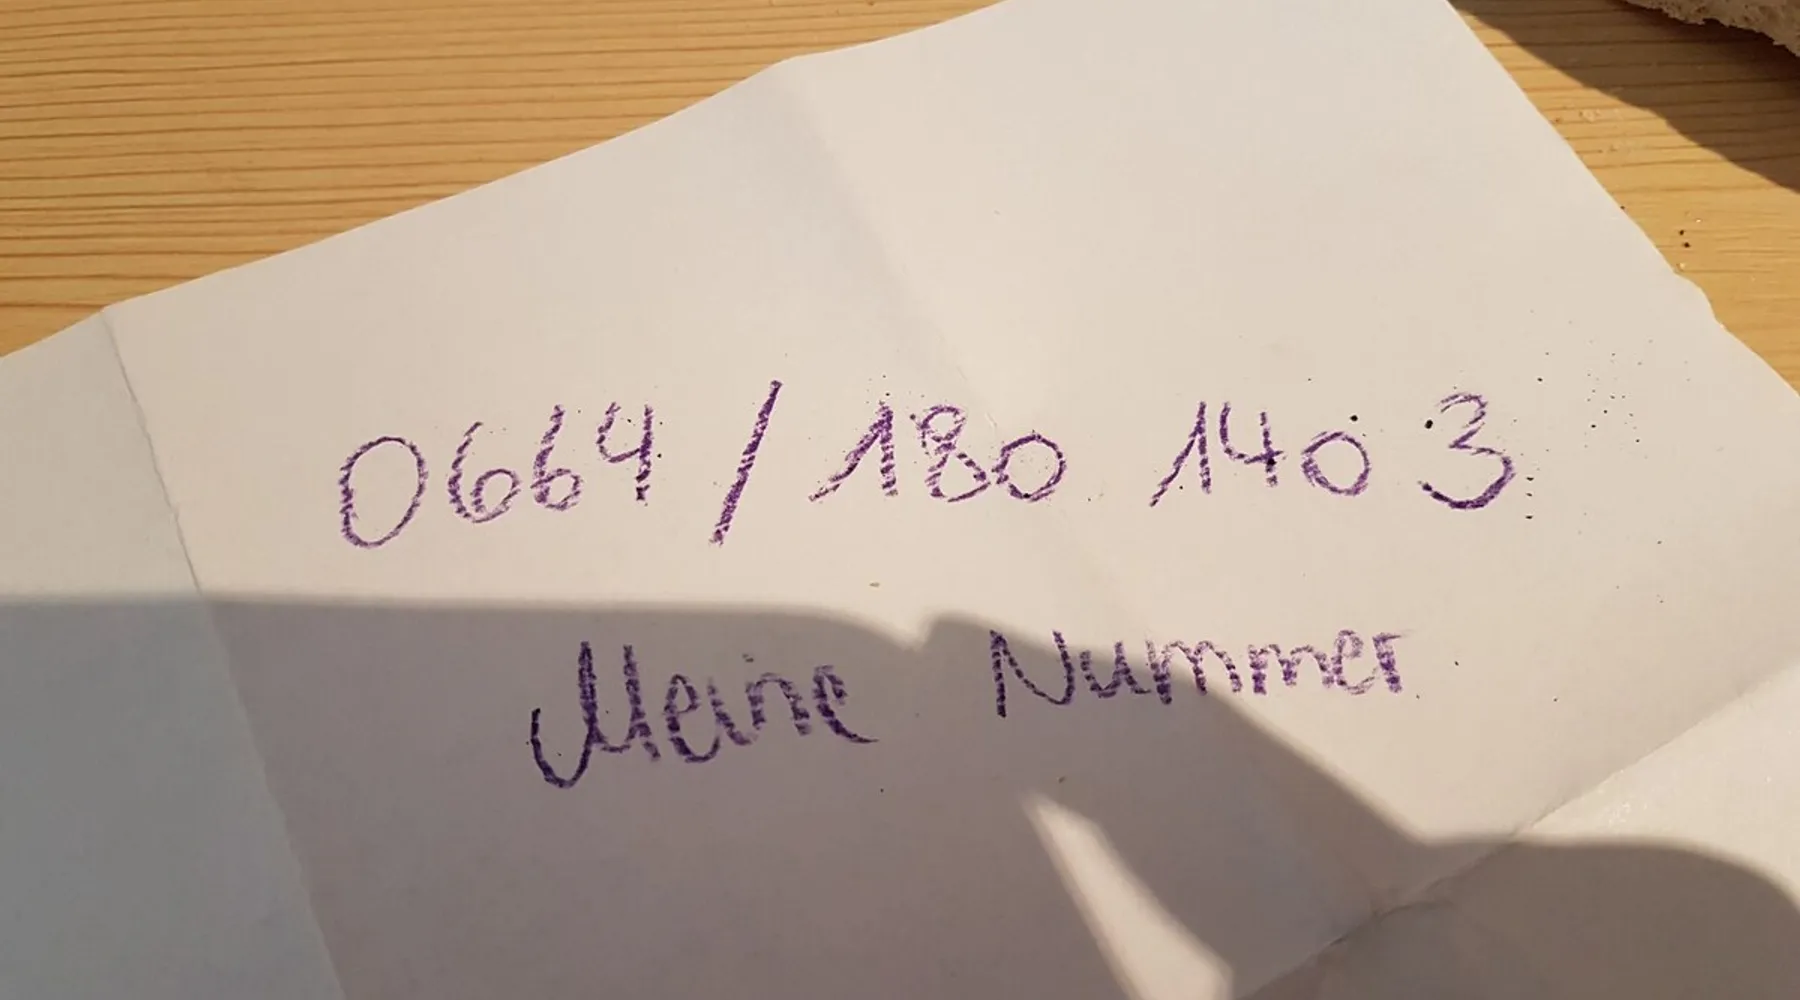 0664 / 180 1403
Meine Nummer